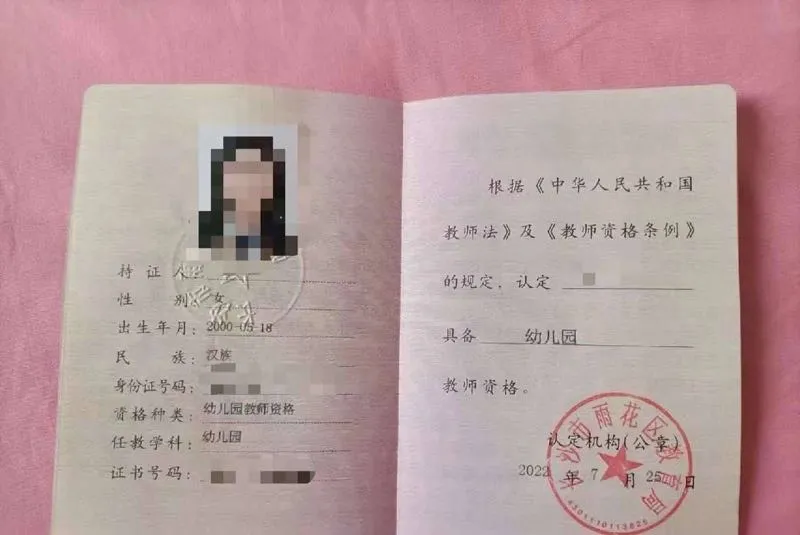 持证人:
性别: 女
出生年月: 2000-05-18
民族: 汉族
身份证号码:
资格种类: 幼儿园教师资格
任教学科: 幼儿园
证书号码:
根据《中华人民共和国
教师法》及《教师资格条例》
的规定，认定
具备 幼儿园
教师资格。
认定机构(公章)
2022 年 7 月 25 日
长沙市雨花区教育局